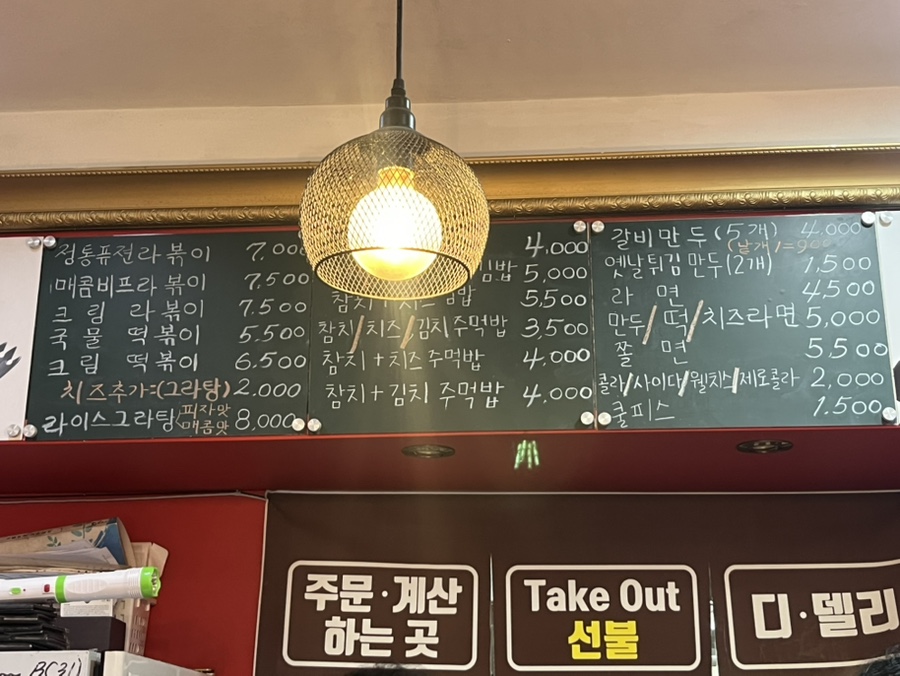 정통퓨전라볶이 7,000
매콤비프라볶이 7,500
크림 라볶이 7.500
국물 떡볶이 5.500
크림 떡볶이 6.500
치즈추가=(그라탕) 2.000
라이스그라탕 피자맛 매콤맛 8,000
4,000
김밥 5,000
참치+치즈김밥 5,500
참치/치즈/김치주먹밥 3,500
참치+치즈주먹밥 4,000
참치+김치주먹밥 4,000
갈비만두(5개) 4.000
(낱개 1=900
옛날튀김만두(2개) 1,500
라면 4,500
만두/떡/치즈라면 5,000
쫄면 5,500
콜라/사이다/웰치스/제로콜라 2,000
쿨피스 1.500
주문·계산
하는 곳
Take Out
선불
디·델리
B(31)